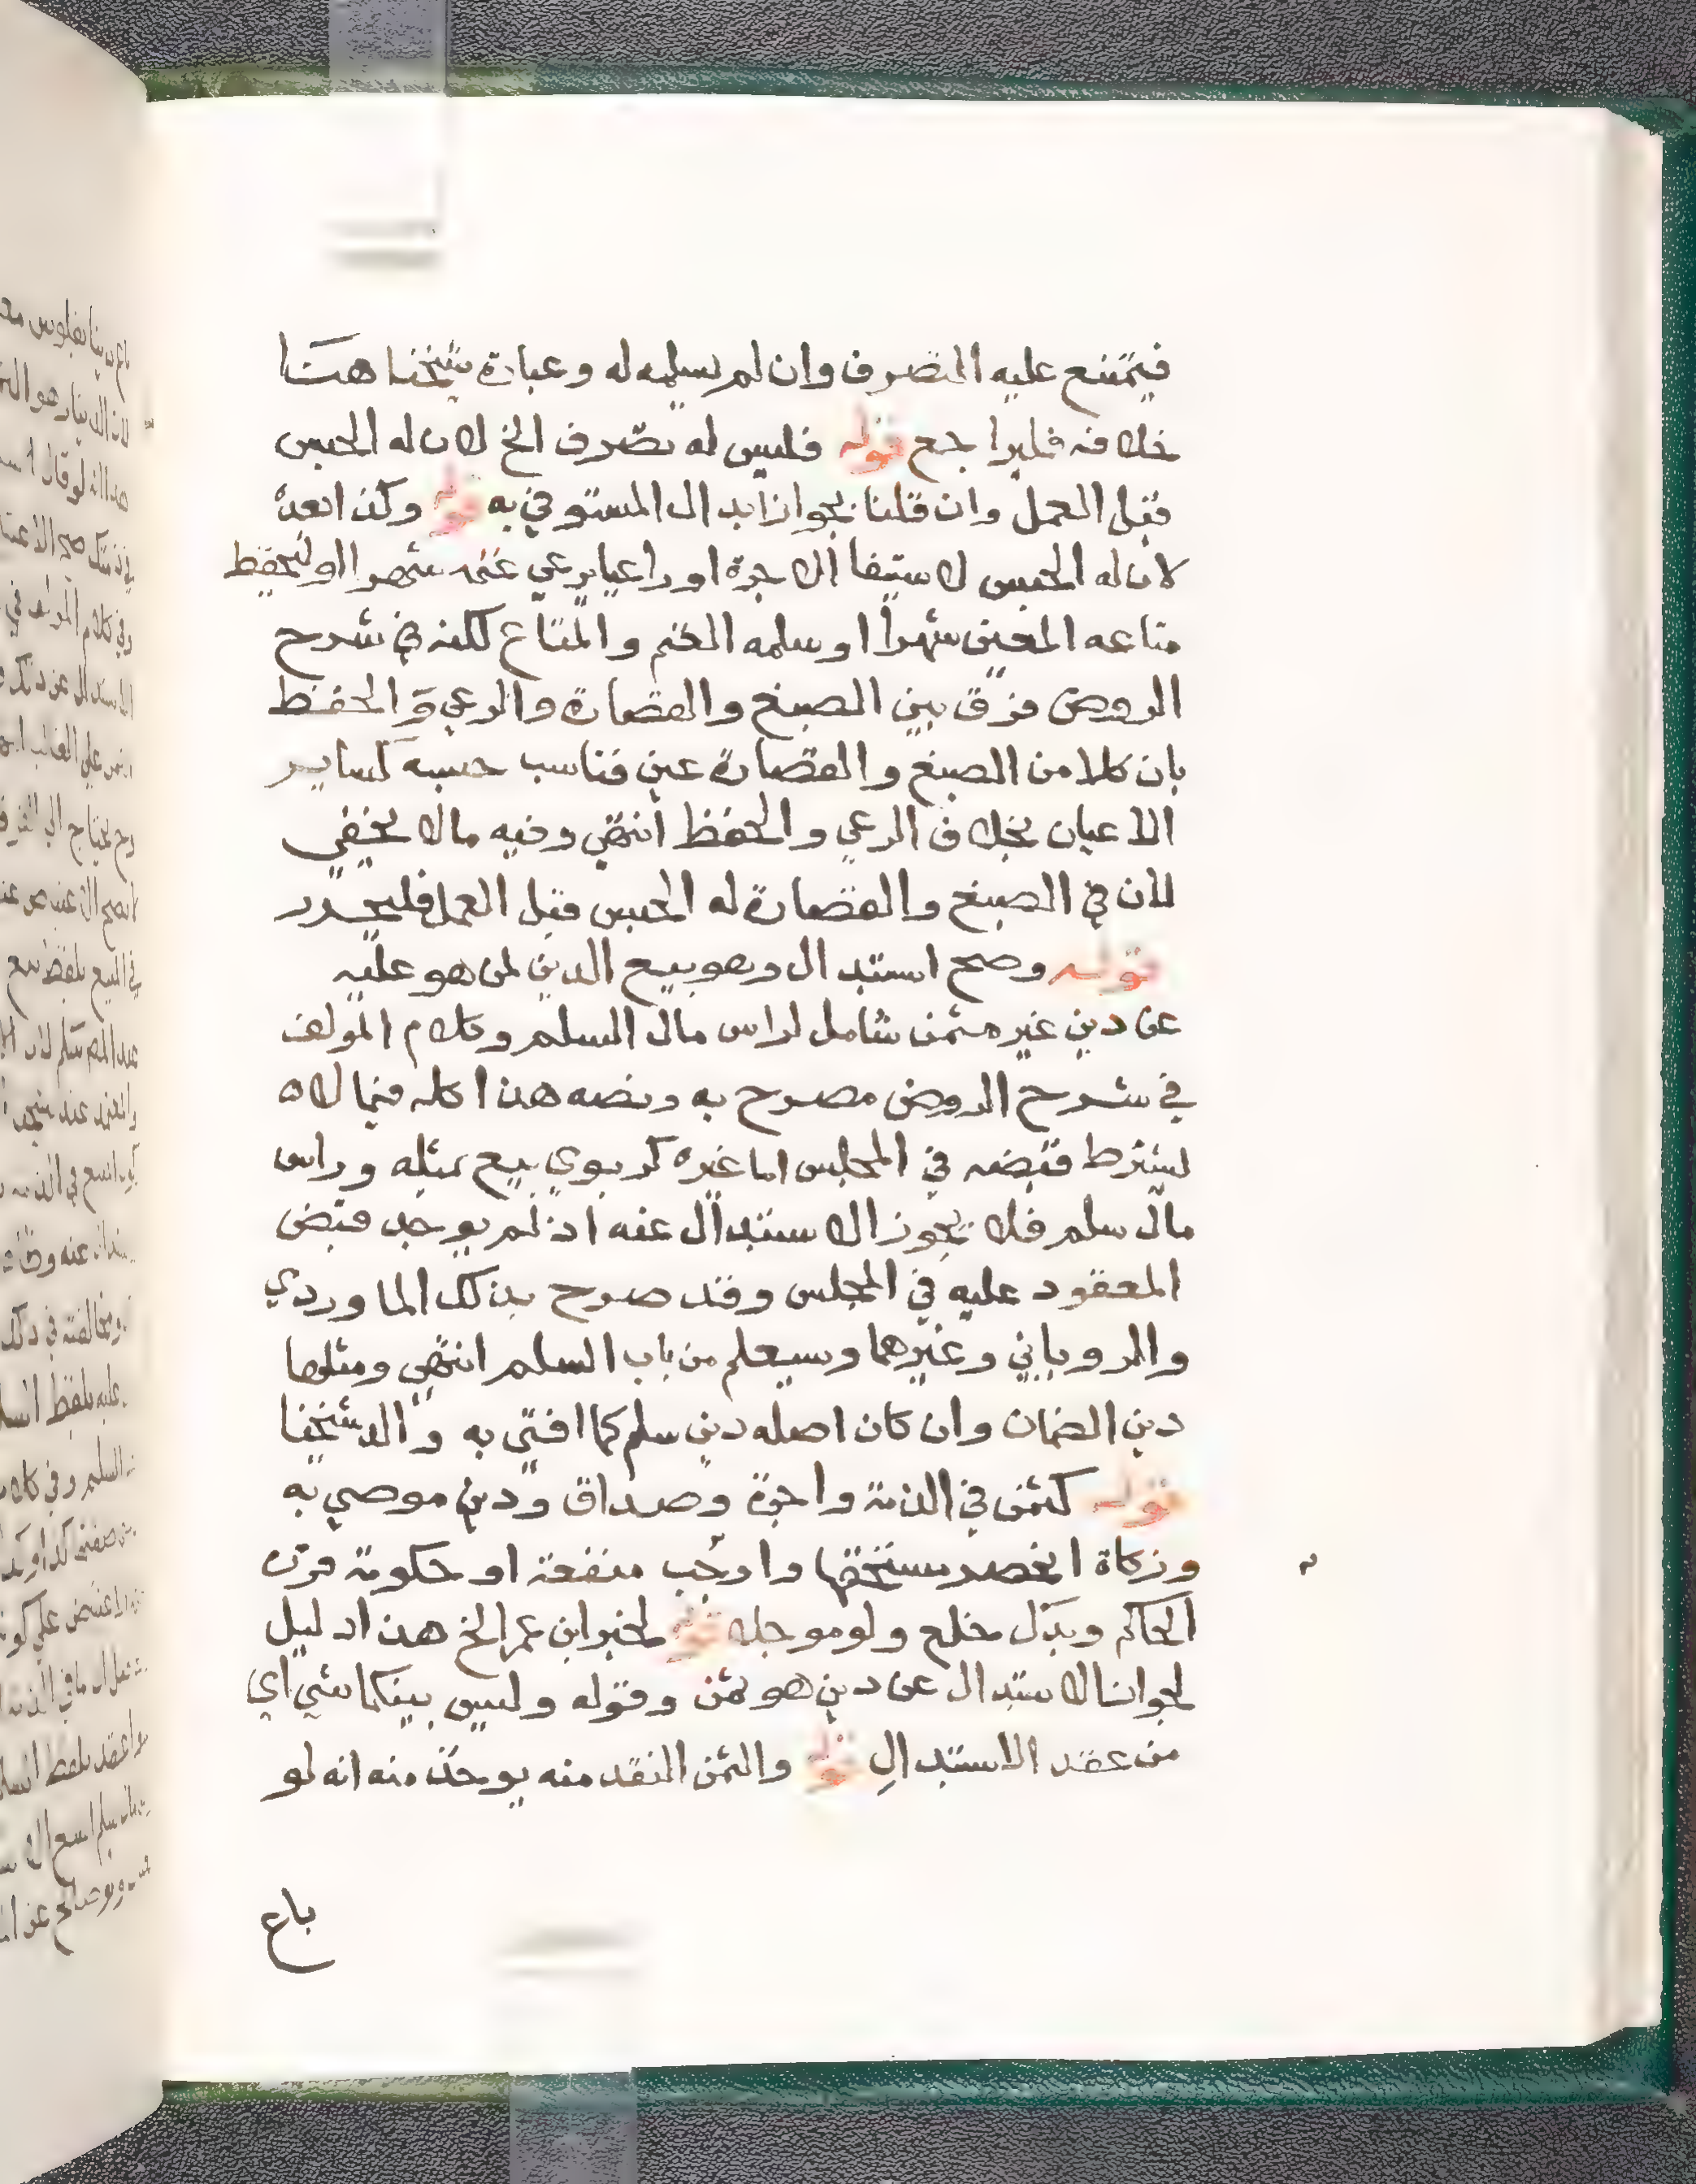 فيمتنع عليه التصرف وان لم يسلمه له وعبارة شيخنا هنا
خلافه فليراجع قوله فليس له تصرف الخ لان له الحبس
قبل العمل وان قلنا بجواز ابدال المستوفي به قوله وكذا بعده
لان له الحبس لاستيفا الاجرة او راعيا يرعي غنمه شهرا او ليحفظ
متاعه المعين شهرا او سلمه الغنم والمتاع لكنه في شرح
الروض فرق بين الصبغ والقصارة والرعي والحفظ
بان كلا من الصبغ والقصارة عين فناسب حبسه كساير
الاعيان بخلاف الرعي والحفظ انتهي وفيه ما لا يخفي
لان في الصبغ والقصارة له الحبس قبل العمل فليحرر
قوله وصح استبدال وهو بيع الدين لمن هو عليه
عن دين غير مثمن شامل لراس مال السلم وكلام المولف
في شرح الروض مصرح به ونصه هذا كله فيما لا
يشترط قبضه في المجلس اما غيره كربوي بيع بمثله وراس
مال سلم فلا يجوز الاستبدال عنه اذ لم يوجد قبض
المعقود عليه في المجلس وقد صرح بذلك الماوردي
والروياني وغيرهما وسيعلم من باب السلم انتهي ومثلها
دين الضمان وان كان اصله دين سلم كما افتي به والد شيخنا
قوله كثمن في الذمة واجرة وصداق ودين موصي به
وزكاة انحصر مستحقها واوجب منفعة او حكومة فرن
الحاكم وبدل خلع ولو موجلا قوله لخبر ابن عمر الخ هذا دليل
لجواز الاستبدال عن دين هو ثمن وقوله وليس بينكما شي اي
من عقد الاستبدال قوله والثمن النقد منه يوخذ منه انه لو
باع